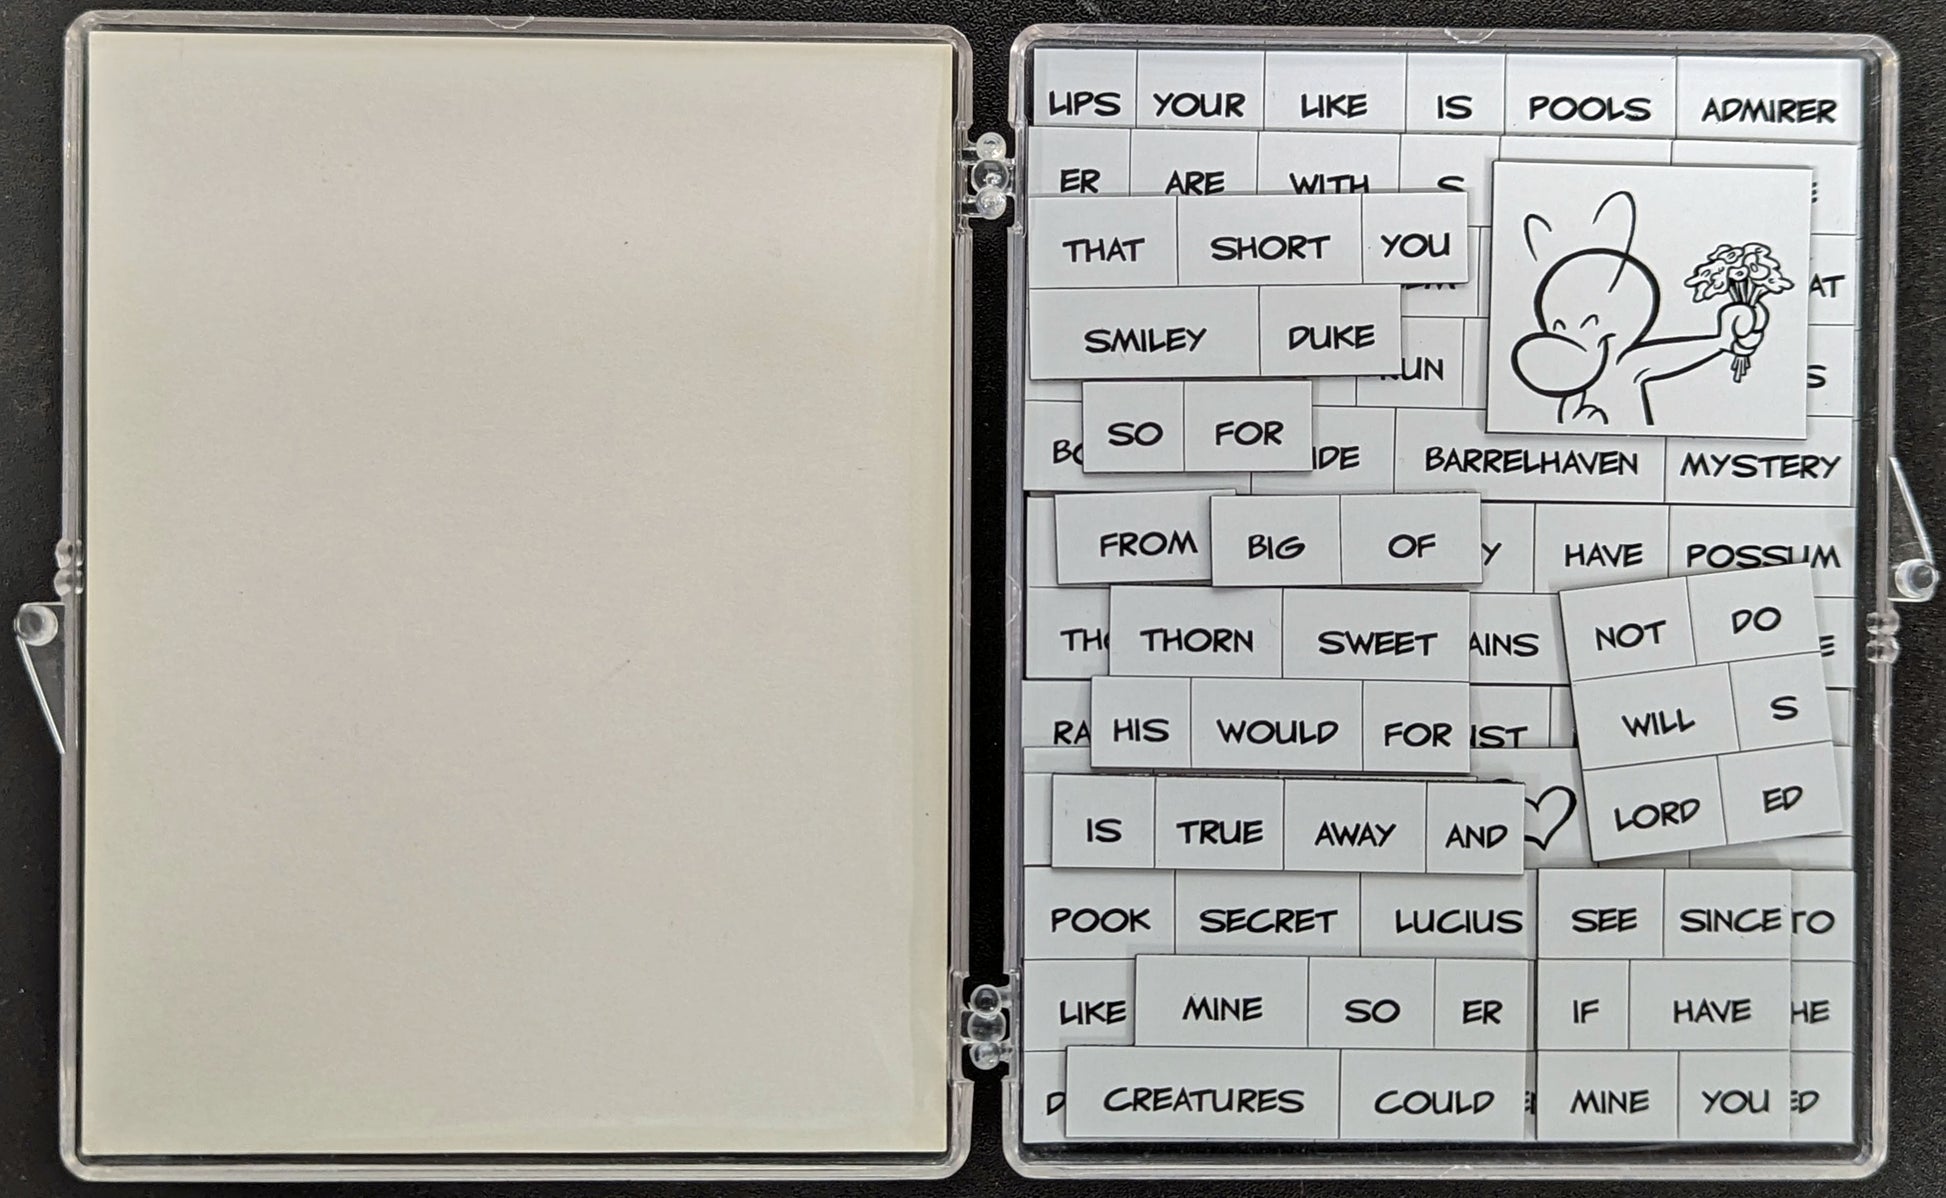 LIPS YOUR LIKE IS POOLS ADMIRER
ER ARE WITH S
THAT SHORT YOU
SMILEY DUKE
SO FOR BARRELHAVEN MYSTERY
FROM BIG OF HAVE POSSUM
THORN SWEET NOT DO
HIS WOULD FOR WILL S
IS TRUE AWAY AND LORD ED
POOK SECRET LUCIUS SEE SINCE TO
LIKE MINE SO ER IF HAVE
CREATURES COULD MINE YOU